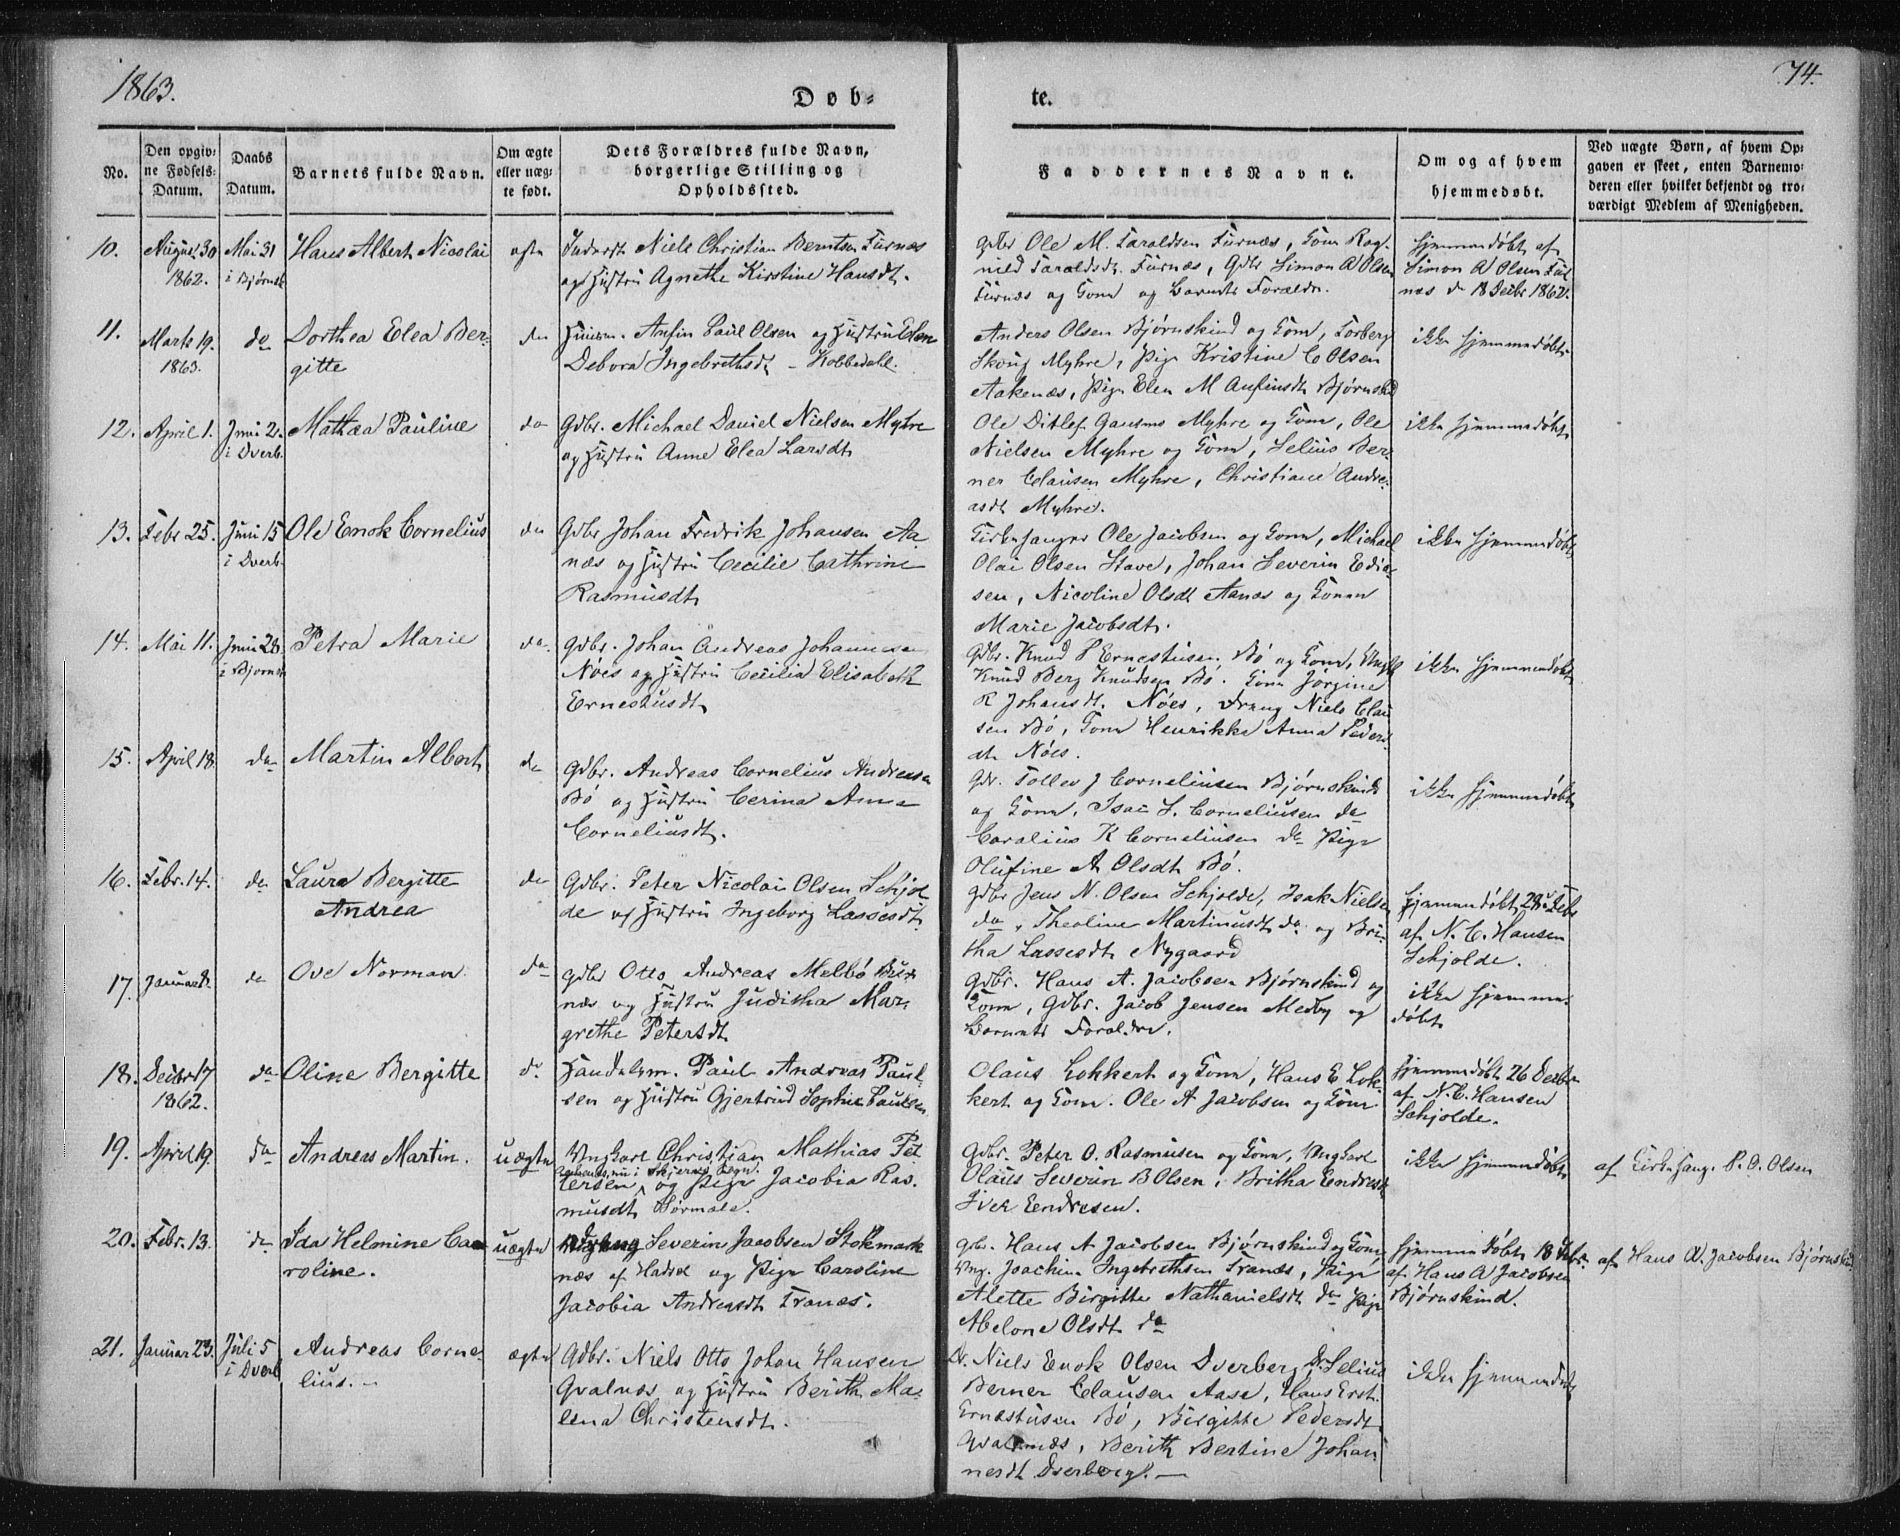 1863.
74.
Døb-
te.
No.
Den opgiv-
ne Fødsels-
Datum.
Daabs
Datum.
Barnets fulde Navn.
Om ægte
eller uæg-
te født.
Dets Forældres fulde Navn,
borgerlige Stilling og
Opholdssted.
Faddernes Navne.
Om og af hvem
hjemmedøbt.
Ved uægte Børn, af hvem Op-
gaven er skeet, enten Barnemo-
deren eller hvilket bekjendt og tro-
værdigt Medlem af Menigheden.
10.
August 30
1862.
Mai 31
i Bjørnsk
Hans Albert Nicolai
ægte
Inderst Niels Christian Berntsen Furnæs
og Hustru Agnethe Kirstine Hansdt.
Gdbr Ole M. Taraldsen Furnæs, Kone Rag-
nild Taraldsdt. Furnæs, Gdbr Simon A Olsen
Furnæs og Kone og Barnets Forældre.
hjemmedøbt af
Simon A Olsen Fur
næs d 18 Decbr 1862.
11.
Marts 19.
1863.
do
Dorthea Elea Ber-
gitte
do
Huusm. Anfin Paul Olsen og Hustru Elen
Debora Ingebrethsdt - Kobbedahl.
Anders Olsen Bjørnskind og Kone, Torberg
Skoug Myhre, Pige Kristine C Olsen
Aakenæs, Pige Elen M Anfinsdt Bjørnskd
ikke hjemmedøbt
12.
April 1.
Juni 2.
i Dverb.
Mathea Pauline
do
Gdbr. Michael Daniel Nielsen Myhre
og Hustru Anne Elea Larsdt
Ole Ditlef Myhre og Kone, Ole
Nielsen Myhre og Kone, Selius Ber-
ner Clausen Myhre, Christiane Andre-
asdt Myhre.
ikke hjemmedøbt
13.
Febr 25.
Juni 15
i Dverb.
Ole Enok Cornelius
do
Gdbr Johan Fredrik Johansen Aa
næs og Hustru Cecilie Cathrine
Rasmusdt
Kirkesanger Ole Jacobsen og Kone, Michael
Olai Olsen Stave, Johan Severin Edia-
sen, Nicoline Olsdt Aanæs og Konen
Marie Jacobsdt.
ikke hjemmedøbt
14.
Mai 11.
Juni 28.
i Bjørnsk
Petra Marie
do.
Gdbr. Johan Andreas Johannesen
Nöes og Hustru Cecilia Elisabeth
Ernestusdt
Gdbr. Knud P Ernestusen Bö og Kone, Ungk
Knud Berg Knudsen Bö. Kone Jorgine
R Johansdt. Nöes, Dreng Niels Clau
sen Bö, Kone Henrikke Anna Peders
dt Nöes.
ikke hjemmedøbt
15.
April 18.
do
Martin Albert
do
Gdbr. Andreas Cornelius Andreasen
Bö og Hustru Cerina Anna
Corneliusdt.
Gdr. Tollev J Corneliusen Bjørnskind
og Kone, Isai S. Corneliusen do
Carolius K Corneliusen do Pige
Olufine A Olsdt Bö.
ikke hjemmedøbt
16.
Febr. 14.
do
Laura Bergitte
Andrea
do
Gdbr. Peter Nicolai Olsen Schjol
de og Hustru Ingeborg Lassesdt.
Gdbr Jens N. Olsen Schjolde, Isak Nielsen
do, Theoline Martinusdt do og Bri-
tha Lassesdt Nygaard
hjemmedøbt 28 Febr
af N. C. Hansen
Schjolde.
17.
Januar 8.
do
Ove Norman
do
Gdbr Otto Andreas Melbö Buk
næs og Hustru Juditha Mar-
grethe Petersdt
Gdbr. Hans A. Jacobsen Bjørnskind og
Kone, Gdbr. Jacob Jensen Medby og
Barnets Forældre.
ikke hjemme-
døbt
18.
Decbr 17
1862.
do
Oline Bergitte
do
Handelsm. Paul Andreas Paul-
sen og Hustru Gjertrud Sophie Paulsen
Olaus Lokkert og Kone, Hans E Lok-
kert og Kone. Ole A Jacobsen og Kone
hjemmedøbt 26 Decbr
af N. C. Hansen
Schjolde.
19.
April 9.
do
Andreas Martin.
uægte
Ungkarl Christian Mathias Pet
tersen og Pige Jacobia Ras-
musdt Sørmæle.
Gdbr. Peter O. Rasmusen og Kone, Ungkarl
Olaus Severin B Olsen, Britha Endresdt
Iver Eendresen.
ikke hjemmedøbt
af Kirkesang. P. O. Olsen
20.
Febr. 13.
do
Ida Helmine Ca
roline.
uægte
Severin Jacobsen Stokmark
næs af Hadsel og Pige Caroline
Jacobia Andreasdt Tranæs.
Gbr. Hans A Jacobsen Bjørnskind og Kone,
Ung. Joachim Ingebrethsen Tranæs, Pige
Alette Birgitte Nathanielsdt do Pige
Abelone Olsdt do
hjemmedøbt 18 Febr.
af Hans A Jacobsen
Bjørnskind.
af Hans A. Jacobsen Bjørnskind
21.
Januar 23.
Juli 5
i Dverb
Andreas Corne-
lius.
ægte
Gdbr. Niels Otto Johan Hansen
Qvalnæs og Hustru Berith Ma-
lena Christensdt.
Dr. Niels Enok Olsen Dverberg, Dr. Selius
Berner Clausen Aase, Hans
Ernestusen Bö, Birgitte Pedersdt
Qvalnæs, Berith Bertine Johan-
nesdt Dverberg.
ikke hjemmedøbt